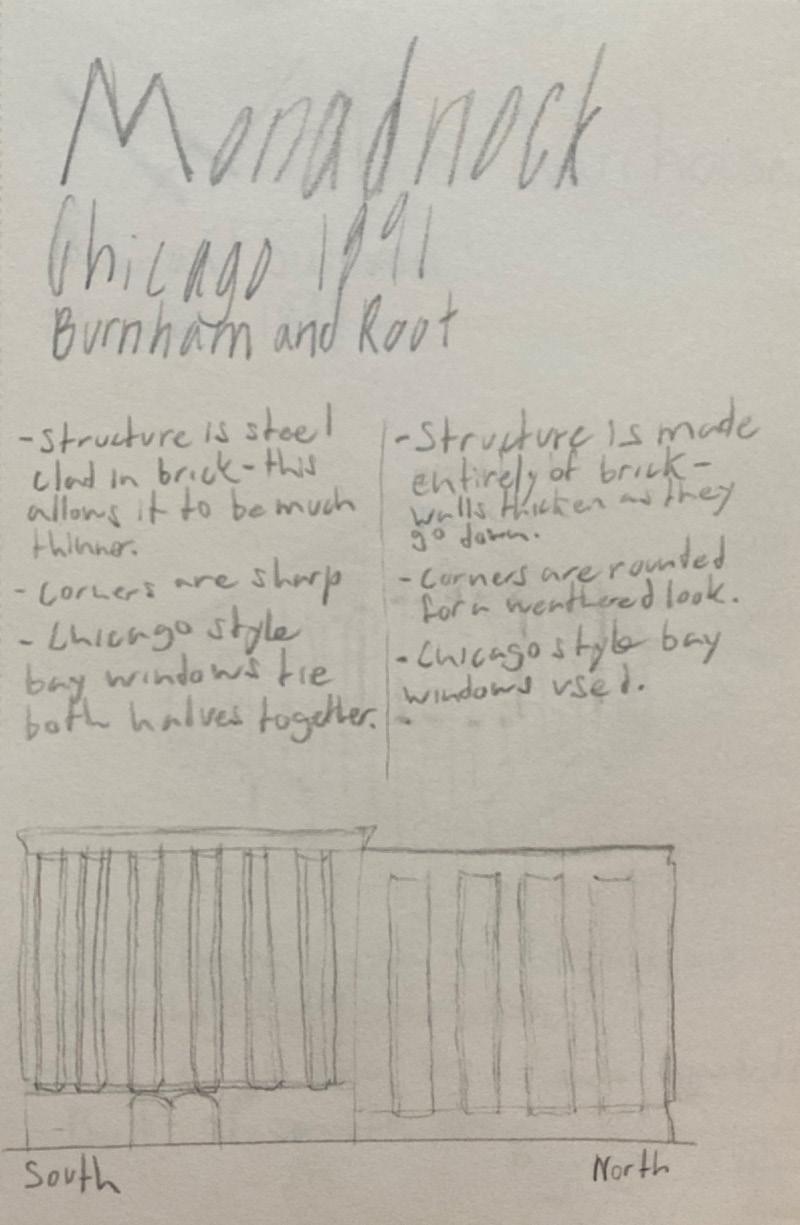 Monadnock
Chicago 1991
Burnham and Root
-Structure is steel
clad in brick-this
allows it to be much
thinner.
- Corners are sharp
- Chicago style
bay windows tie
both halves together.
-Structure is made
entirely of brick-
walls thicken as they
go down.
-Corners are rounded
for a weathered look.
-Chicago style bay
windows used.
South
North